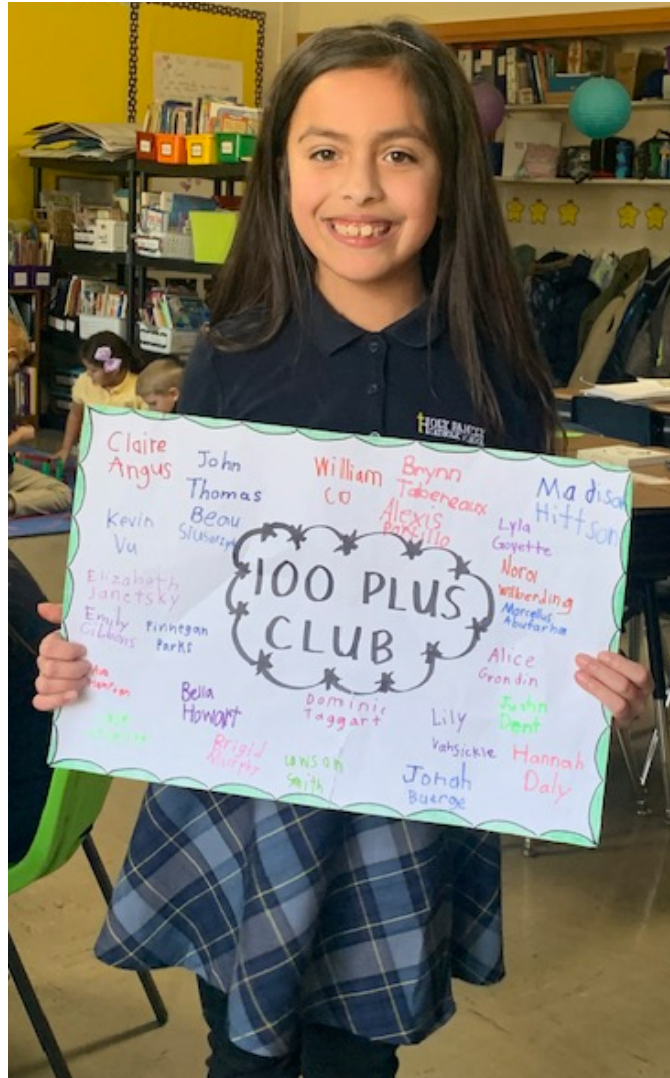 HOLY FAMILY
CATHOLIC SCHOOL
Claire
Angus
John
Thomas
William
CO
Brynn
Tabereaux
Madison
Hittson
Kevin
Vu
Beau
Alexis
Portillo
Lyla
Goyette
100 PLUS
CLUB
Nora
Wilberding
Marcellus
Abufarha
Elizabeth
Janetsky
Emily
Gibbons
Finnegan
Parks
Alice
Grondin
Bella
Howart
Dominic
Taggart
Lily
Vansickle
Justin
Dent
Brigid
Murphy
Lawson
Smith
Jonah
Buerge
Hannah
Daly